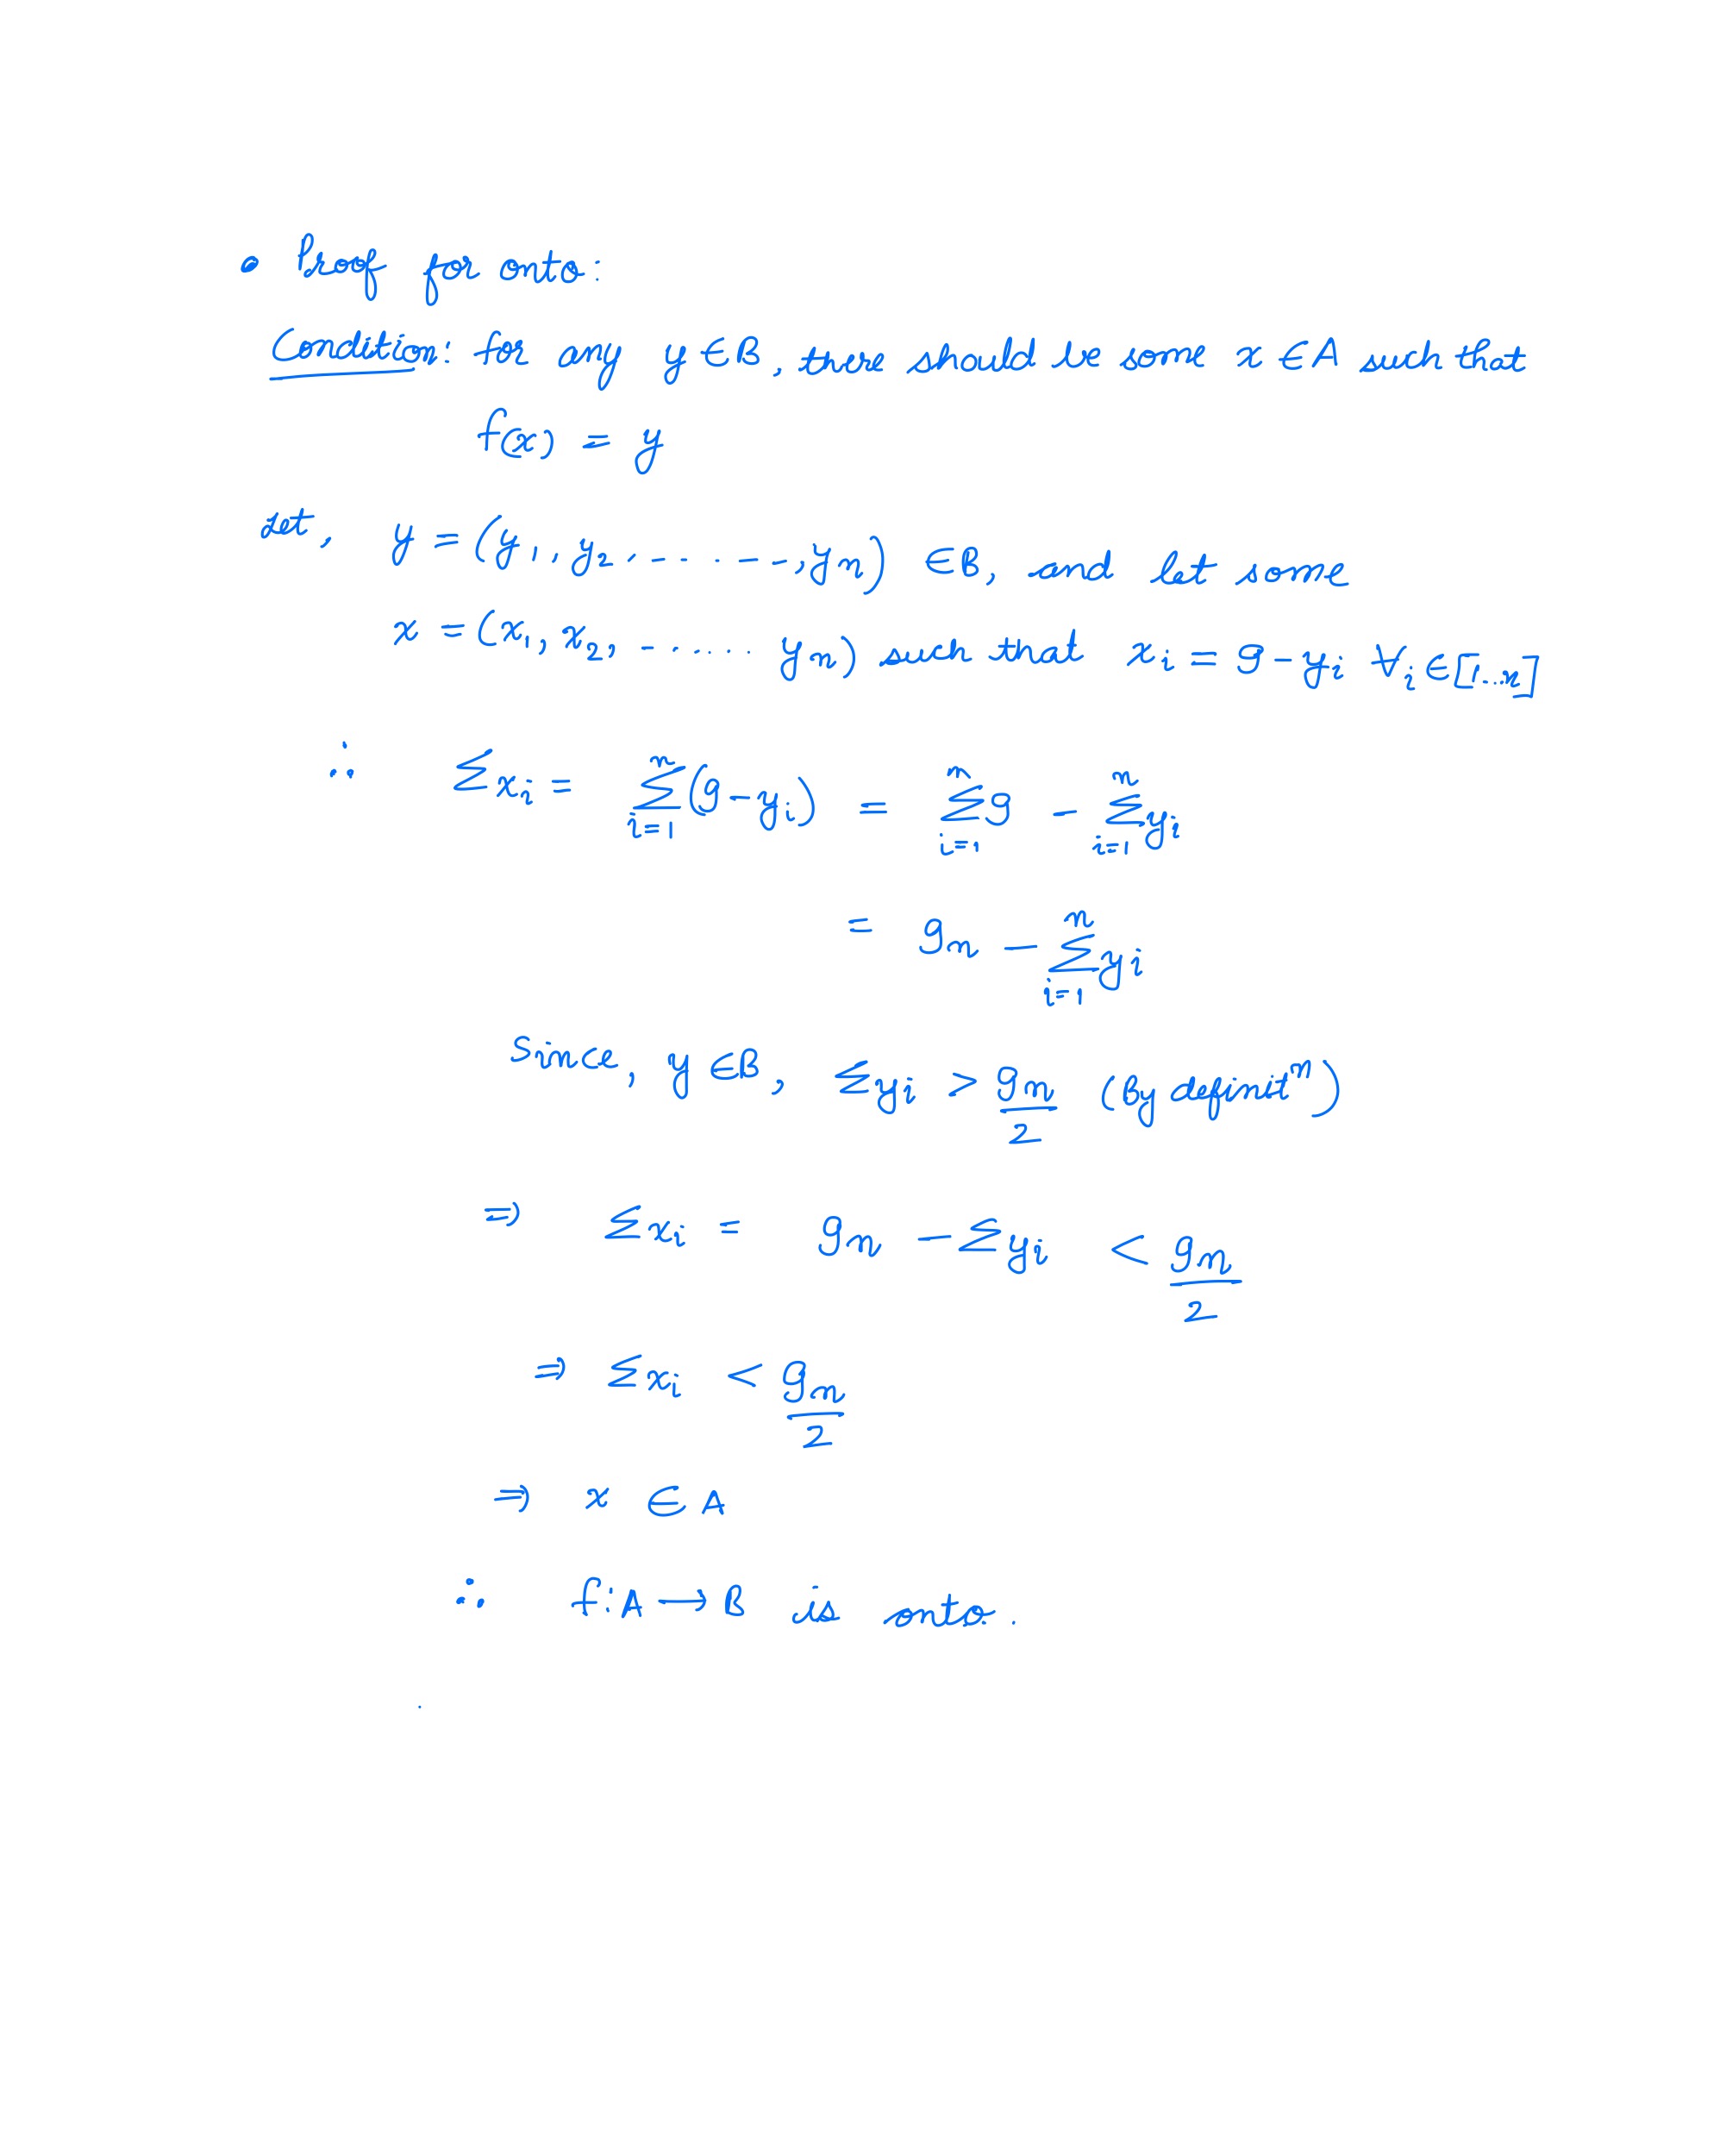 • Proof for onto:
Condition: for any y ∈ B, there should be some x ∈ A such that
f(x) = y
Let, y = (y₁, y₂, - - . . - - -, yn) ∈ B, and let some
x = (x₁, x₂, - . . . . . yn) such that xi = 9 - yi ∀i ∈ [1...n]
∴ Σxi = Σ_{i=1}^{n} (9 - yi) = Σ_{i=1}^{n} 9 - Σ_{i=1}^{n} yi
= 9n - Σ_{i=1}^{n} yi
Since, y ∈ B, Σyi > 9n/2 (By definitⁿ)
⇒ Σxi = 9n - Σyi < 9n/2
⇒ Σxi < 9n/2
⇒ x ∈ A
∴ f: A → B is onto.